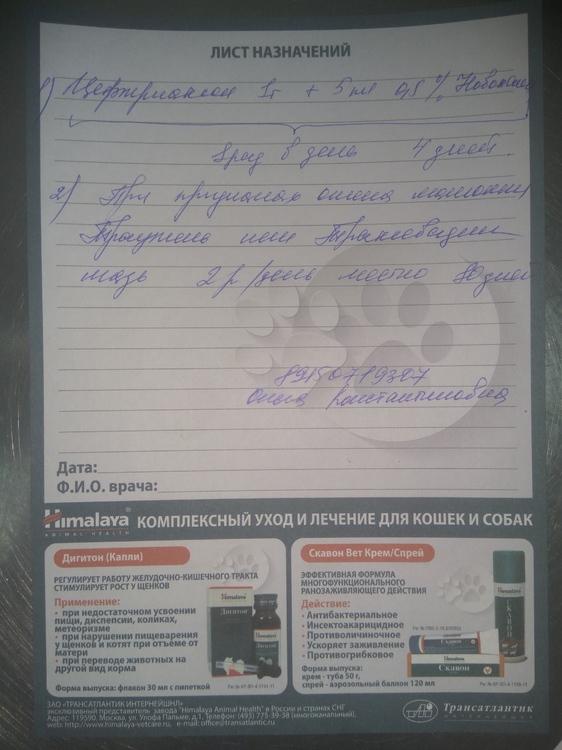 ЛИСТ НАЗНАЧЕНИЙ
1) Цефтриаксон 1г + 5 мл 0,5% Новокаин
1 раз в день 4 дней.
2) При признаках отека молочной
Траумель или
мазь 2 р/день местно 10 дней
89150719307
Ольга Константиновна
Дата:
Ф.И.О. врача:
Himalaya КОМПЛЕКСНЫЙ УХОД И ЛЕЧЕНИЕ ДЛЯ КОШЕК И СОБАК
ANIMAL HEALTH
Дигитон (Капли)
РЕГУЛИРУЕТ РАБОТУ ЖЕЛУДОЧНО-КИШЕЧНОГО ТРАКТА
СТИМУЛИРУЕТ РОСТ У ЩЕНКОВ
Применение:
• при недостаточном усвоении
пищи, диспепсии, коликах,
метеоризме
• при нарушении пищеварения
у щенков и котят при отъёме от
матери
• при переводе животных на
другой вид корма
Форма выпуска: флакон 30 мл с пипеткой
Himalaya
Дигитон
Скавон Вет Крем/Спрей
ЭФФЕКТИВНАЯ ФОРМУЛА
МНОГОФУНКЦИОНАЛЬНОГО
РАНОЗАЖИВЛЯЮЩЕГО ДЕЙСТВИЯ
Действие:
• Антибактериальное
• Инсектоакарицидное
• Противоличиночное
• Ускоряет заживление
• Противогрибковое
Форма выпуска:
крем - туба 50 г,
спрей - аэрозольный баллон 120 мл
Himalaya
СКАВОН
Скавон
ЗАО «ТРАНСАТЛАНТИК ИНТЕРНЕЙШНЛ»
эксклюзивный представитель завода "Himalaya Animal Health" в России и странах СНГ
Адрес: 119590. Москва, ул. Улофа Пальме, д.1, Телефон: (495) 775-39-38 (многоканальный).
web: http://www.himalaya-vetcare.ru, e-mail: office@transatlantic.ru
Трансатлантик
ИНТЕРНЕЙШНЛ